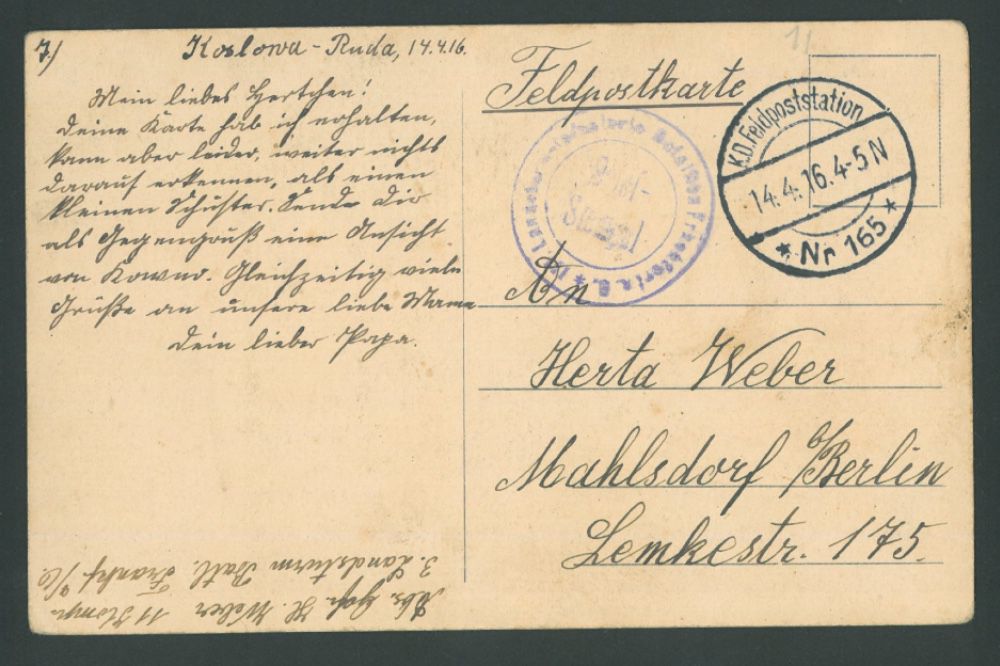 7.)
Koslowa-Ruda, 14.4.16.
Mein liebes Hertchen!
Deine Karte hab ich erhalten,
kann aber leider, weiter nichts
darauf erkennen, als einen
kleinen Schuster. Sende Dir
als Gegengruß eine Ansicht
von Kowno. Gleichzeitig viele
Grüße an unsere liebe Mama
Dein lieber Papa.
Feldpostkarte
K.D. Feldpoststation
14.4.16.4-5N
* Nr 165 *
Brief-
Stempel
An
Herta Weber
Mahlsdorf b/Berlin
Lemkestr. 175.
Abs. H. Weber 11 Komp.
3. Landsturm Batl. Frankf a/O.